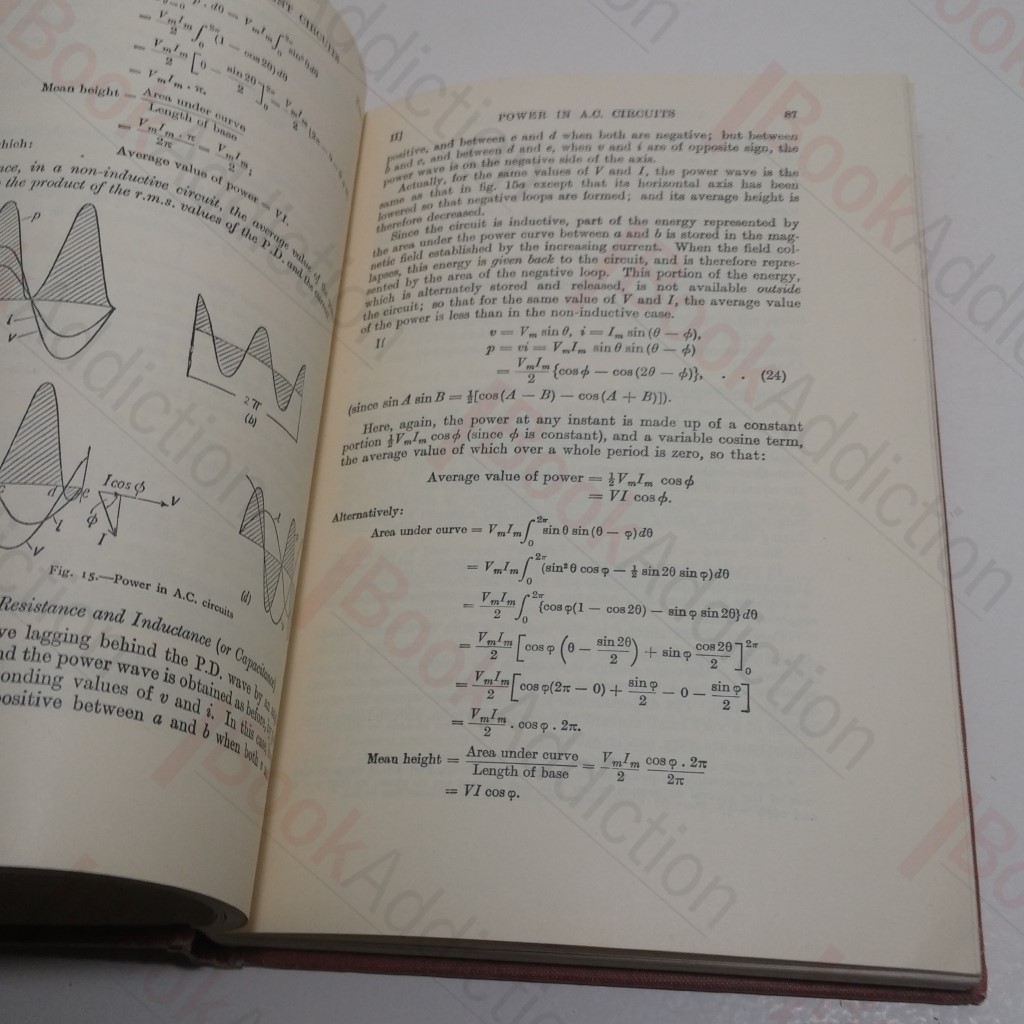 = V_m I_m · π.
Mean height = Area under curve / Length of base
= V_m I_m · π / 2π = V_m I_m / 2
Average value of power = VI.
hich:
nce, in a non-inductive circuit, the average value of the
the product of the r.m.s. values of the P.D. and the
p
i
v
2π
(b)
d e I cos φ V
φ
i I
v
(d)
Fig. 15.—Power in A.C. circuits
Resistance and Inductance (or Capacitance)
ve lagging behind the P.D. wave by an
nd the power wave is obtained, as before, by
onding values of v and i. In this case,
positive between a and b when both v
POWER IN A.C. CIRCUITS 87
II]
positive, and between c and d when both are negative; but between
b and c, and between d and e, when v and i are of opposite sign, the
power wave is on the negative side of the axis.
Actually, for the same values of V and I, the power wave is the
same as that in fig. 15a except that its horizontal axis has been
lowered so that negative loops are formed; and its average height is
therefore decreased.
Since the circuit is inductive, part of the energy represented by
the area under the power curve between a and b is stored in the mag-
netic field established by the increasing current. When the field col-
lapses, this energy is given back to the circuit, and is therefore repre-
sented by the area of the negative loop. This portion of the energy,
which is alternately stored and released, is not available outside
the circuit; so that for the same value of V and I, the average value
of the power is less than in the non-inductive case.
If v = V_m sin θ, i = I_m sin (θ − φ),
p = vi = V_m I_m sin θ sin (θ − φ)
= V_m I_m / 2 {cos φ − cos (2θ − φ)}, . . (24)
(since sin A sin B = ½[cos (A − B) − cos (A + B)]).
Here, again, the power at any instant is made up of a constant
portion ½V_m I_m cos φ (since φ is constant), and a variable cosine term,
the average value of which over a whole period is zero, so that:
Average value of power = ½V_m I_m cos φ
= VI cos φ.
Alternatively:
Area under curve = V_m I_m ∫₀^2π sin θ sin (θ − φ) dθ
= V_m I_m ∫₀^2π (sin² θ cos φ − ½ sin 2θ sin φ) dθ
= V_m I_m / 2 ∫₀^2π {cos φ(1 − cos 2θ) − sin φ sin 2θ} dθ
= V_m I_m / 2 [cos φ (θ − sin 2θ / 2) + sin φ cos 2θ / 2]₀^2π
= V_m I_m / 2 [cos φ(2π − 0) + sin φ / 2 − 0 − sin φ / 2]
= V_m I_m / 2 · cos φ . 2π.
Mean height = Area under curve / Length of base = V_m I_m / 2 cos φ . 2π / 2π
= VI cos φ.
BookAddiction